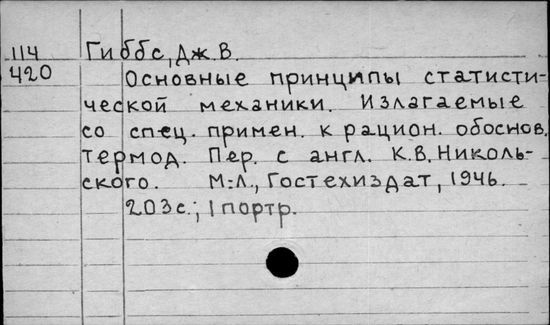 114 Гиббс, Дж. В.
420 Основные принципы статисти-
ческой механики. Излагаемые
со спец. примен. к рацион. обоснов.
термод. Пер. с англ. К.В. Николь-
ского. М.-Л., Гостехиздат, 1946.
203с.; 1 портр.